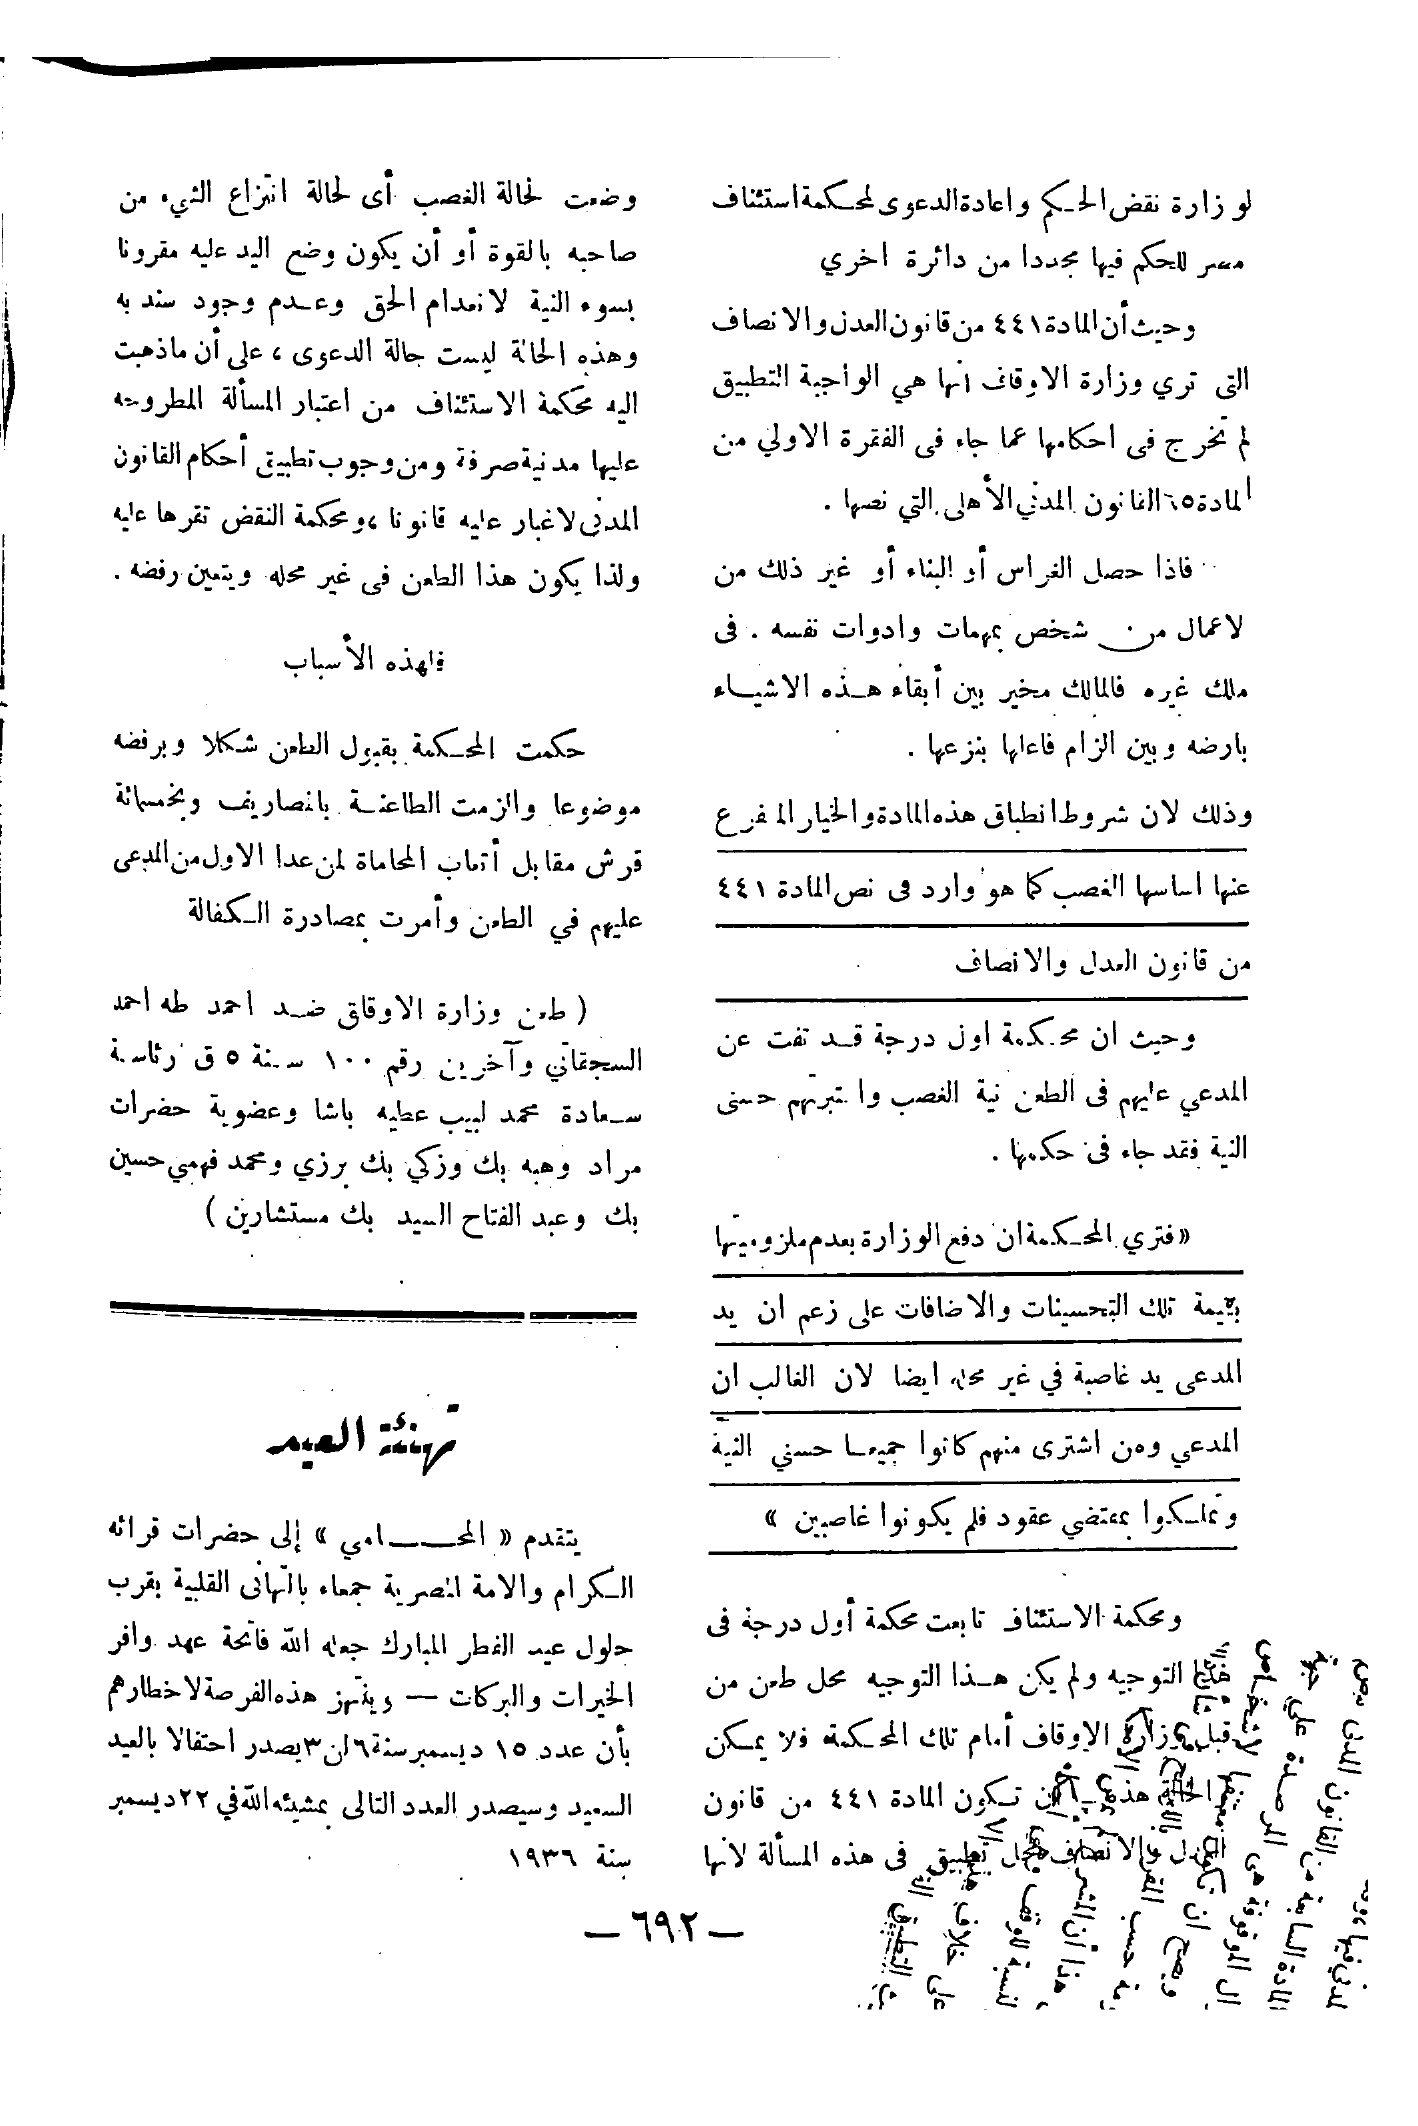 لوزارة نقض الحكم واعادة الدعوى لمحكمة استئناف
مصر للحكم فيها مجددا من دائرة اخري
وحيث أن المادة ٤٤١ من قانون العدل والانصاف
التى تري وزارة الاوقاف انها هي الواجبة التطبيق
لم تخرج فى احكامها عما جاء فى الفقرة الاولي من
المادة ٦٥ القانون المدني الأهلى التي نصها .
فاذا حصل الغراس أو البناء أو غير ذلك من
لاعمال من شخص بمهمات وادوات نفسه . فى
ملك غيره فالمالك مخير بين أبقاء هذه الاشياء
بارضه وبين الزام فاعلها بنزعها .
وذلك لان شروط انطباق هذه المادة والخيار المفرع
عنها اساسها الغصب كما هو وارد فى نص المادة ٤٤١
من قانون العدل والانصاف
وحيث ان محكمة اول درجة قد نفت عن
المدعي عليهم فى الطعن نية الغصب واعتبرتهم حسنى
النية فقد جاء فى حكمها .
« فتري المحكمة ان دفع الوزارة بعدم ملزوميتها
بقيمة تلك التحسينات والاضافات على زعم ان يد
المدعى يد غاصبة في غير محله ايضا لان الغالب ان
المدعي ومن اشترى منهم كانوا جميعا حسني النية
وتملكوا بمقتضي عقود فلم يكونوا غاصبين »
ومحكمة الاستئناف تابعت محكمة أول درجة فى
هذا التوجيه ولم يكن هذا التوجيه محل طعن من
قبل وزارة الاوقاف أمام تلك المحكمة فلا يمكن
الحالة هذه أن تكون المادة ٤٤١ من قانون
العدل والانصاف محل تطبيق فى هذه المسألة لانها
وضعت لحالة الغصب أى لحالة انتزاع الشيء من
صاحبه بالقوة أو أن يكون وضع اليد عليه مقرونا
بسوء النية لانعدام الحق وعدم وجود سند به
وهذه الحالة ليست حالة الدعوى ، على أن ماذهبت
اليه محكمة الاستئناف من اعتبار المسألة المطروحه
عليها مدنية صرفة ومن وجوب تطبيق أحكام القانون
المدنى لاغبار عليه قانونا ، ومحكمة النقض تقرها عليه
ولذا يكون هذا الطعن فى غير محله ويتعين رفضه .
فلهذه الأسباب
حكمت المحكمة بقبول الطعن شكلا وبرفضه
موضوعا والزمت الطاعنة بالمصاريف وبخمسمائة
قرش مقابل أتعاب المحاماة لمن عدا الاول من المدعى
عليهم في الطعن وأمرت بمصادرة الكفالة
( طعن وزارة الاوقاق ضد احمد طه احمد
السجقاني وآخرين رقم ١٠٠ سنة ٥ ق رئاسة
سعادة محمد لبيب عطيه باشا وعضوية حضرات
مراد وهبه بك وزكي بك برزي ومحمد فهمي حسين
بك وعبد الفتاح السيد بك مستشارين )
تهنئة العيد
يتقدم « المحامي » إلى حضرات قرائه
الكرام والامة المصرية جمعاء بالتهانى القلبية بقرب
حلول عيد الفطر المبارك جعله الله فاتحة عهد وافر
الخيرات والبركات — وينتهز هذه الفرصة لاخطارهم
بأن عدد ١٥ ديسمبر سنة ٦ ان ٣ يصدر احتفالا بالعيد
السعيد وسيصدر العدد التالى بمشيئه الله في ٢٢ ديسمبر
سنة ١٩٣٦
— ٦٩٢ —